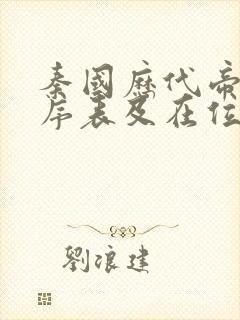 秦國歷代帝
序表及在位
劉浪建